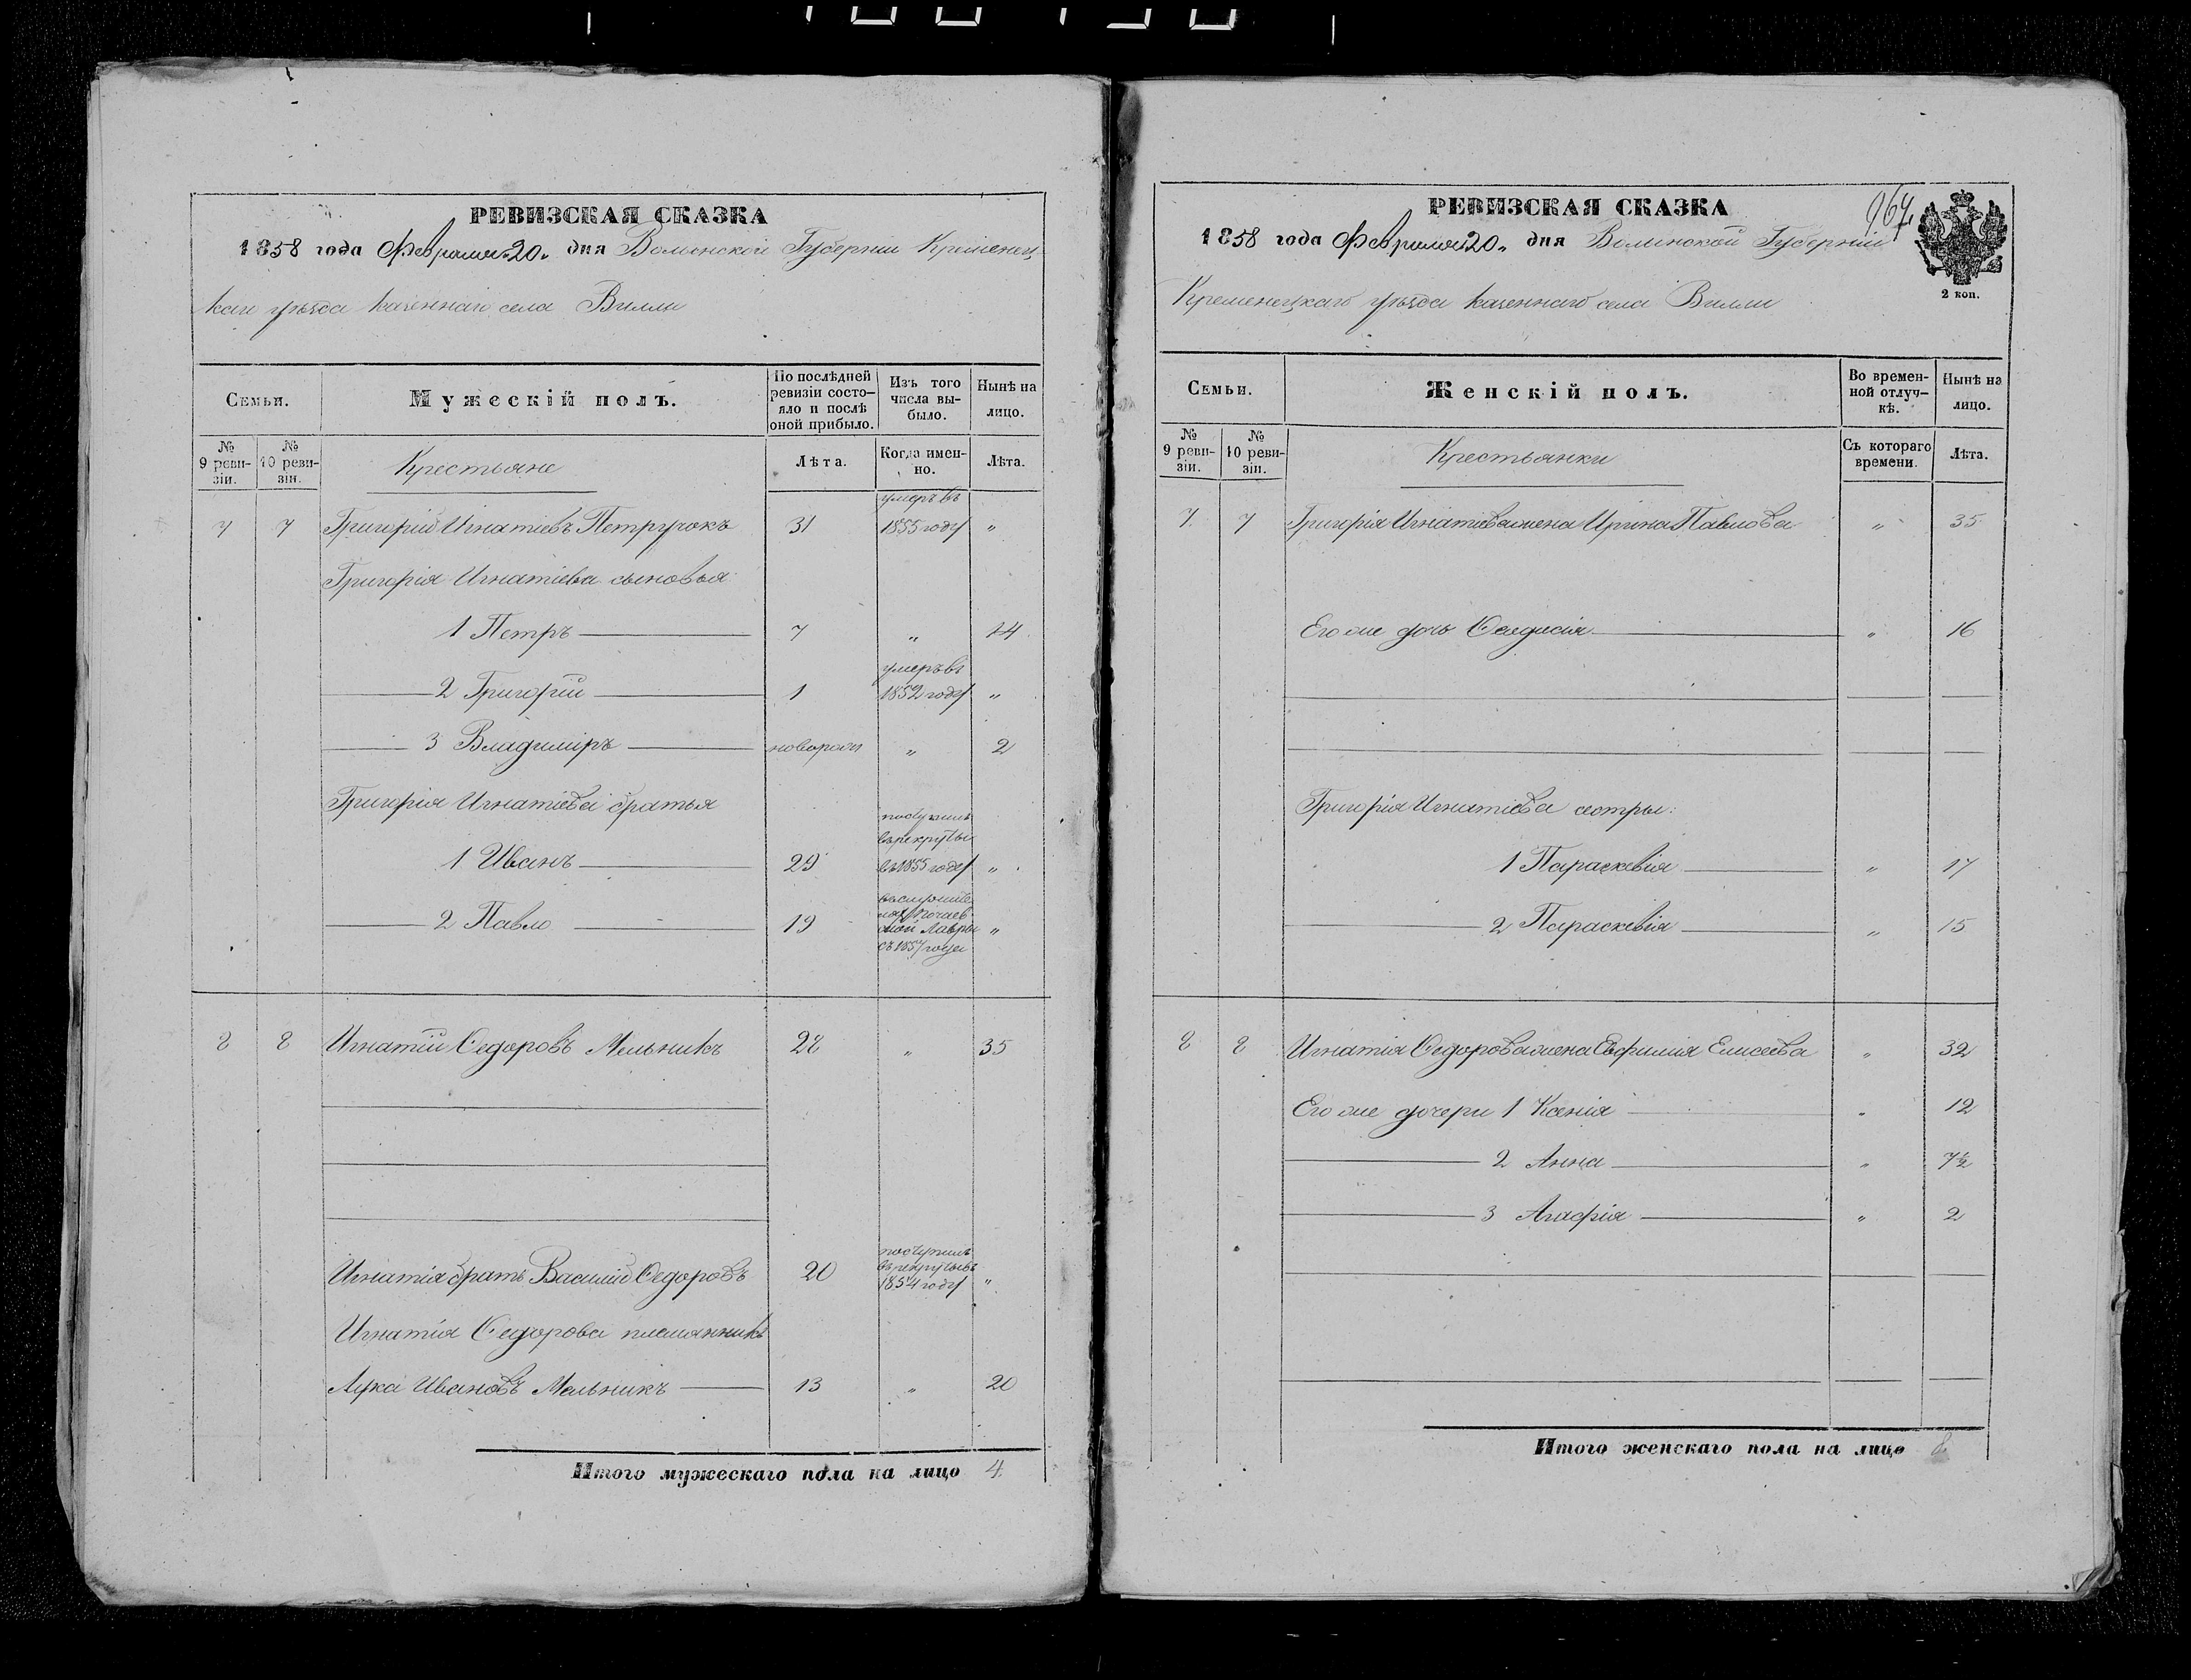 РЕВИЗСКАЯ СКАЗКА
1858 года Февраля „20„ дня Волынской Губернии Кременец
каго уѣзда казеннаго села Вилли
Семьи.
Мужескій полъ.
По послѣдней ревизіи состо-
яло и послѣ
оной прибыло.
Изъ того
числа вы-
было.
Нынѣ на
лицо.
№
9 реви-
зіи.
№
10 реви-
зіи.
Крестьяне
Лѣта.
Когда имен-
но.
Лѣта.
умеръ въ
7 7 Григорій Игнатіевъ Петручокъ 31 1855 году „
Григорія Игнатіева сыновья
1 Петръ 7 „ 14
умеръ въ
2 Григорій 1 1852 году „
3 Владиміръ новорож „ 2
Григорія Игнатіева братья
поступилъ
въ рекруты
1 Иванъ 29 въ 1855 году „
2 Павло 19 Почаев
ской Лавры „
съ 1857 года
8 8 Игнатій Ѳедоровъ Мельникъ 28 „ 35
поступилъ
Игнатія братъ Василій Ѳедоровъ 20 въ рекруты въ
1854 году „
Игнатія Ѳедорова племянникъ
Лука Ивановъ Мельникъ 13 „ 20
Итого мужескаго пола на лицо 4
РЕВИЗСКАЯ СКАЗКА
967
1858 года Февраля „20„ дня Волынской Губерніи
Кременецкаго уѣзда казеннаго села Вилли
2 коп.
Семьи.
Женскій полъ.
Во времен-
ной отлуч-
кѣ.
Нынѣ на
лицо.
№
9 реви-
зіи.
№
10 реви-
зіи.
Крестьянки
Съ котораго
времени.
Лѣта.
7 7 Григорія Игнатіева жена Ирина Павлова „ 35
Его же дочь Ѳеодосія „ 16
Григорія Игнатіева сестры:
1 Параскевія „ 17
2 Параскевія „ 15
8 8 Игнатія Ѳедорова жена Евфимія Елисеева „ 32
Его же дочери 1 Ксенія „ 12
2 Анна „ 7½
3 Агафія „ 2
Итого женскаго пола на лицо 8